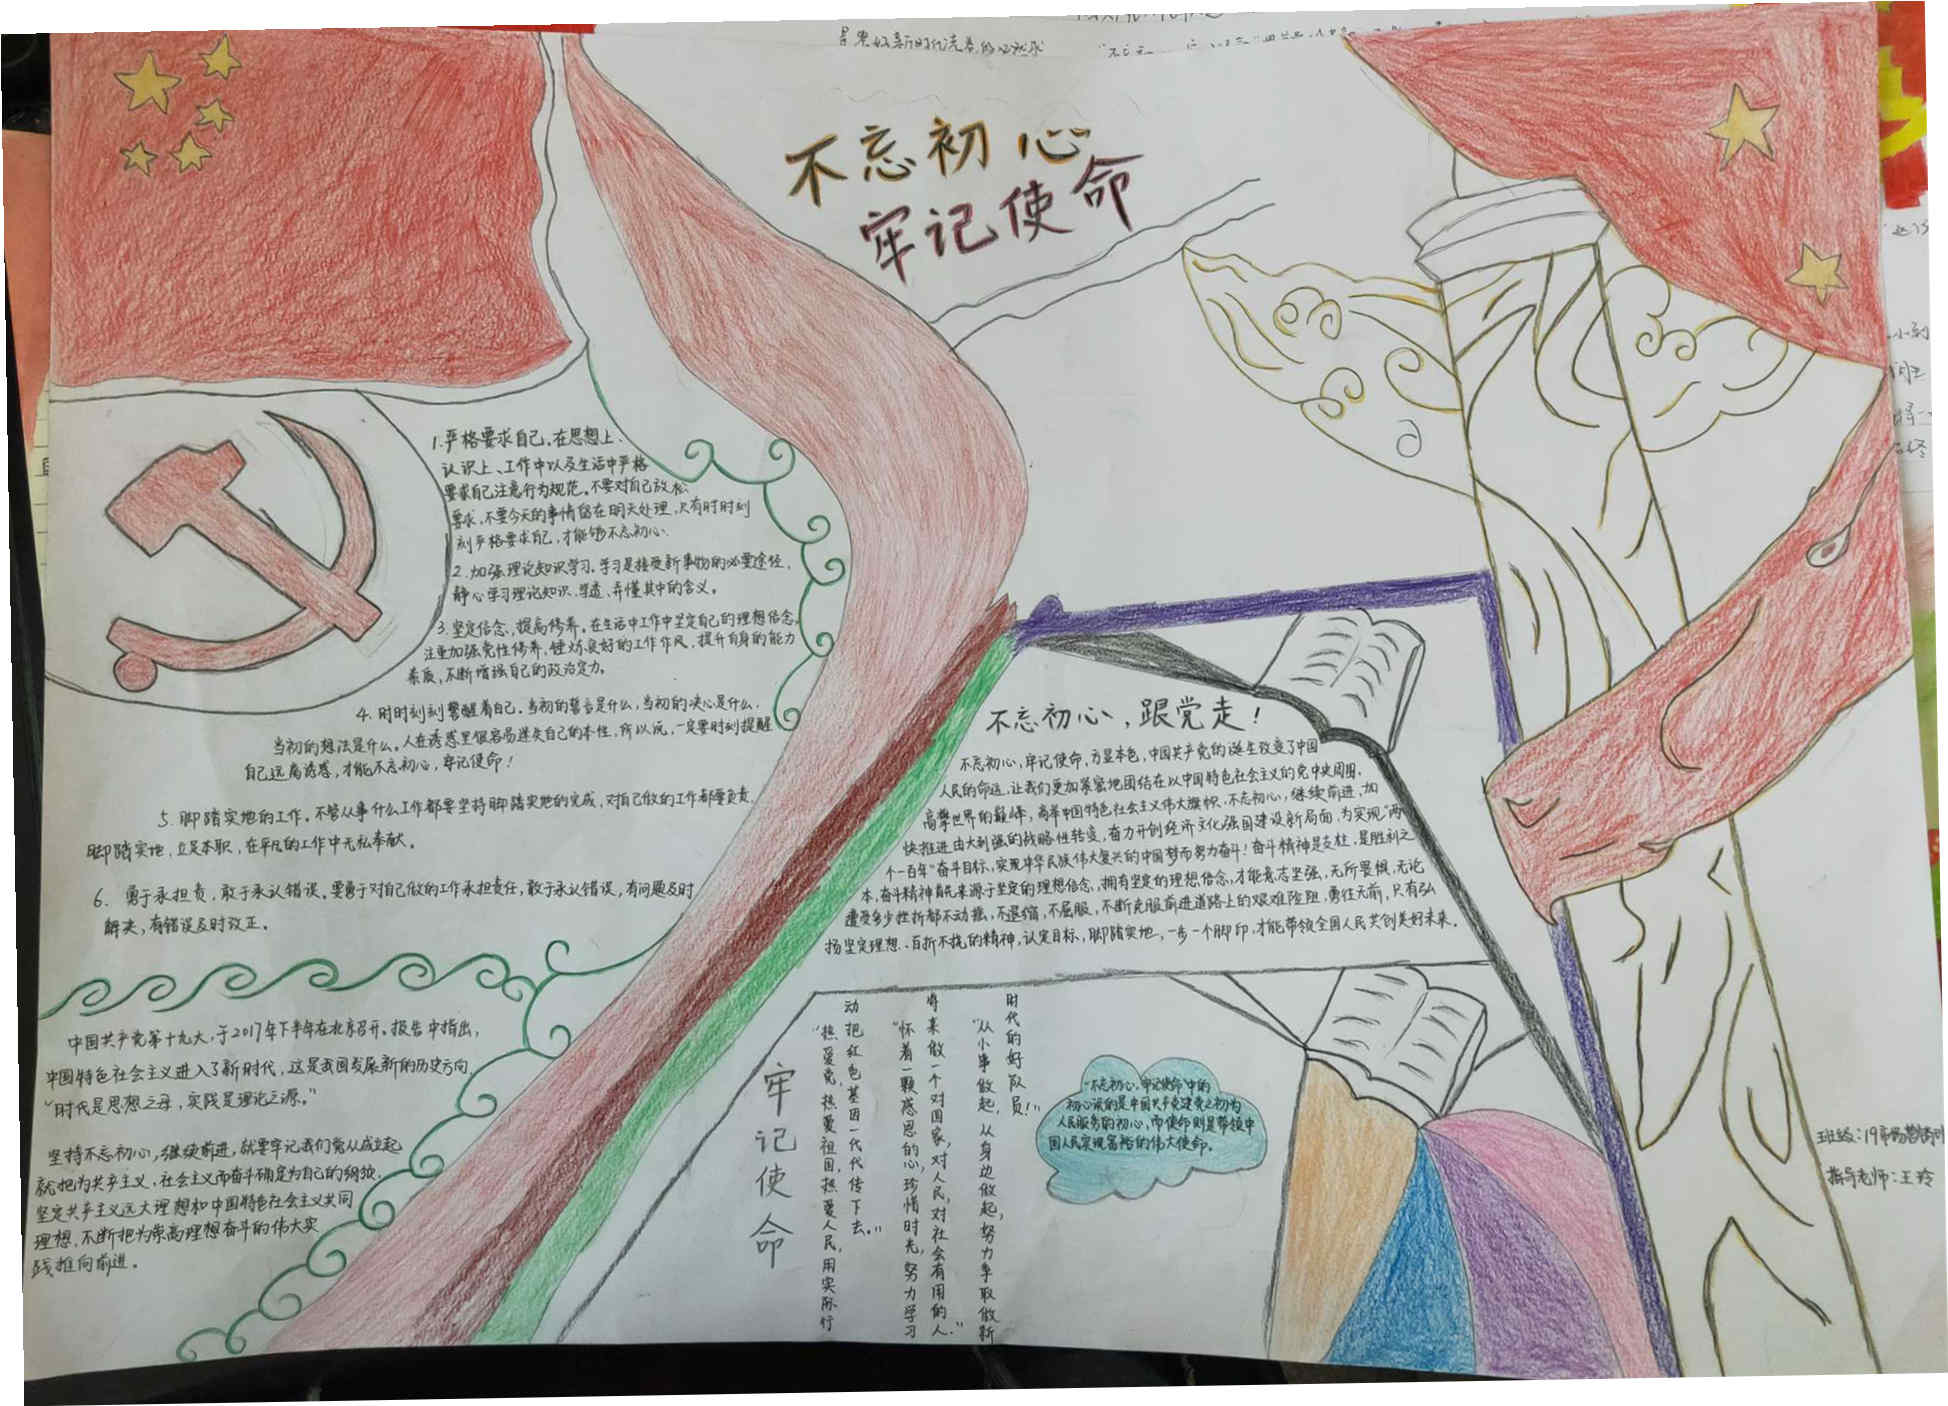 不忘初心
牢记使命
1.严格要求自己。在思想上、
认识上、工作中以及生活中严格
要求自己注意行为规范。不要对自己放松
要求,不要今天的事情留在明天处理,只有时时刻
刻严格要求自己,才能够不忘初心。
2.加强理论知识学习。学习是接受新事物的必要途径,
静心学习理论知识、学透、弄懂其中的含义。
3.坚定信念,提高修养。在生活中工作中坚定自己的理想信念,
注重加强党性修养,锤炼良好的工作作风,提升自身的能力
素质,不断增强自己的政治定力。
4.时时刻刻警醒着自己。当初的誓言是什么,当初的决心是什么,
当初的想法是什么。人在诱惑里很容易迷失自己的本性,所以说,一定要时刻提醒
自己远离诱惑,才能不忘初心,牢记使命!
5.脚踏实地的工作。不管从事什么工作都要坚持脚踏实地的完成,对自己做的工作都要负责,
脚踏实地,立足本职,在平凡的工作中无私奉献。
6.勇于承担责,敢于承认错误。要勇于对自己做的工作承担责任,敢于承认错误,有问题及时
解决,有错误及时改正。
中国共产党第十九大,于2017年下半年在北京召开。报告中指出,
中国特色社会主义进入了新时代,这是我国发展新的历史方向,
“时代是思想之母,实践是理论之源。”
坚持不忘初心,继续前进,就要牢记我们党从成立起
就把为共产主义,社会主义而奋斗确定为自己的纲领,
坚定共产主义远大理想和中国特色社会主义共同
理想,不断把为崇高理想奋斗的伟大实
践推向前进。
不忘初心,跟党走!
不忘初心,牢记使命,方显本色,中国共产党的诞生改变了中国
人民的命运,让我们更加紧密地团结在以中国特色社会主义的党中央周围,
高攀世界的巅峰,高举中国特色社会主义伟大旗帜,不忘初心,继续前进,加
快推进由大到强的战略性转变,奋力开创经济文化强国建设新局面,为实现“两
个一百年”奋斗目标,实现中华民族伟大复兴的中国梦而努力奋斗!奋斗精神是支柱,是胜利之
本,奋斗精神首先来源于坚定的理想信念,拥有坚定的理想信念,才能意志坚强,无所畏惧,无论
遭受多少挫折都不动摇,不退缩,不屈服,不断克服前进道路上的艰难险阻,勇往无前,只有弘
扬坚定理想、百折不挠的精神,认定目标,脚踏实地,一步一个脚印,才能带领全国人民共创美好未来。
牢记使命
“热爱党,热爱祖国,热爱人民,用实际行
动把红色基因一代代传下去。”
“怀着一颗感恩的心,珍惜时光,努力学习
将来做一个对国家,对人民,对社会有用的人。”
“从小事做起,从身边做起,努力争取做新
时代的好队员!”
“不忘初心,牢记使命”中的
初心说的是中国共产党建党之初为
人民服务的初心,而使命则是带领中
国人民实现富裕的伟大使命。
指导老师:王玲